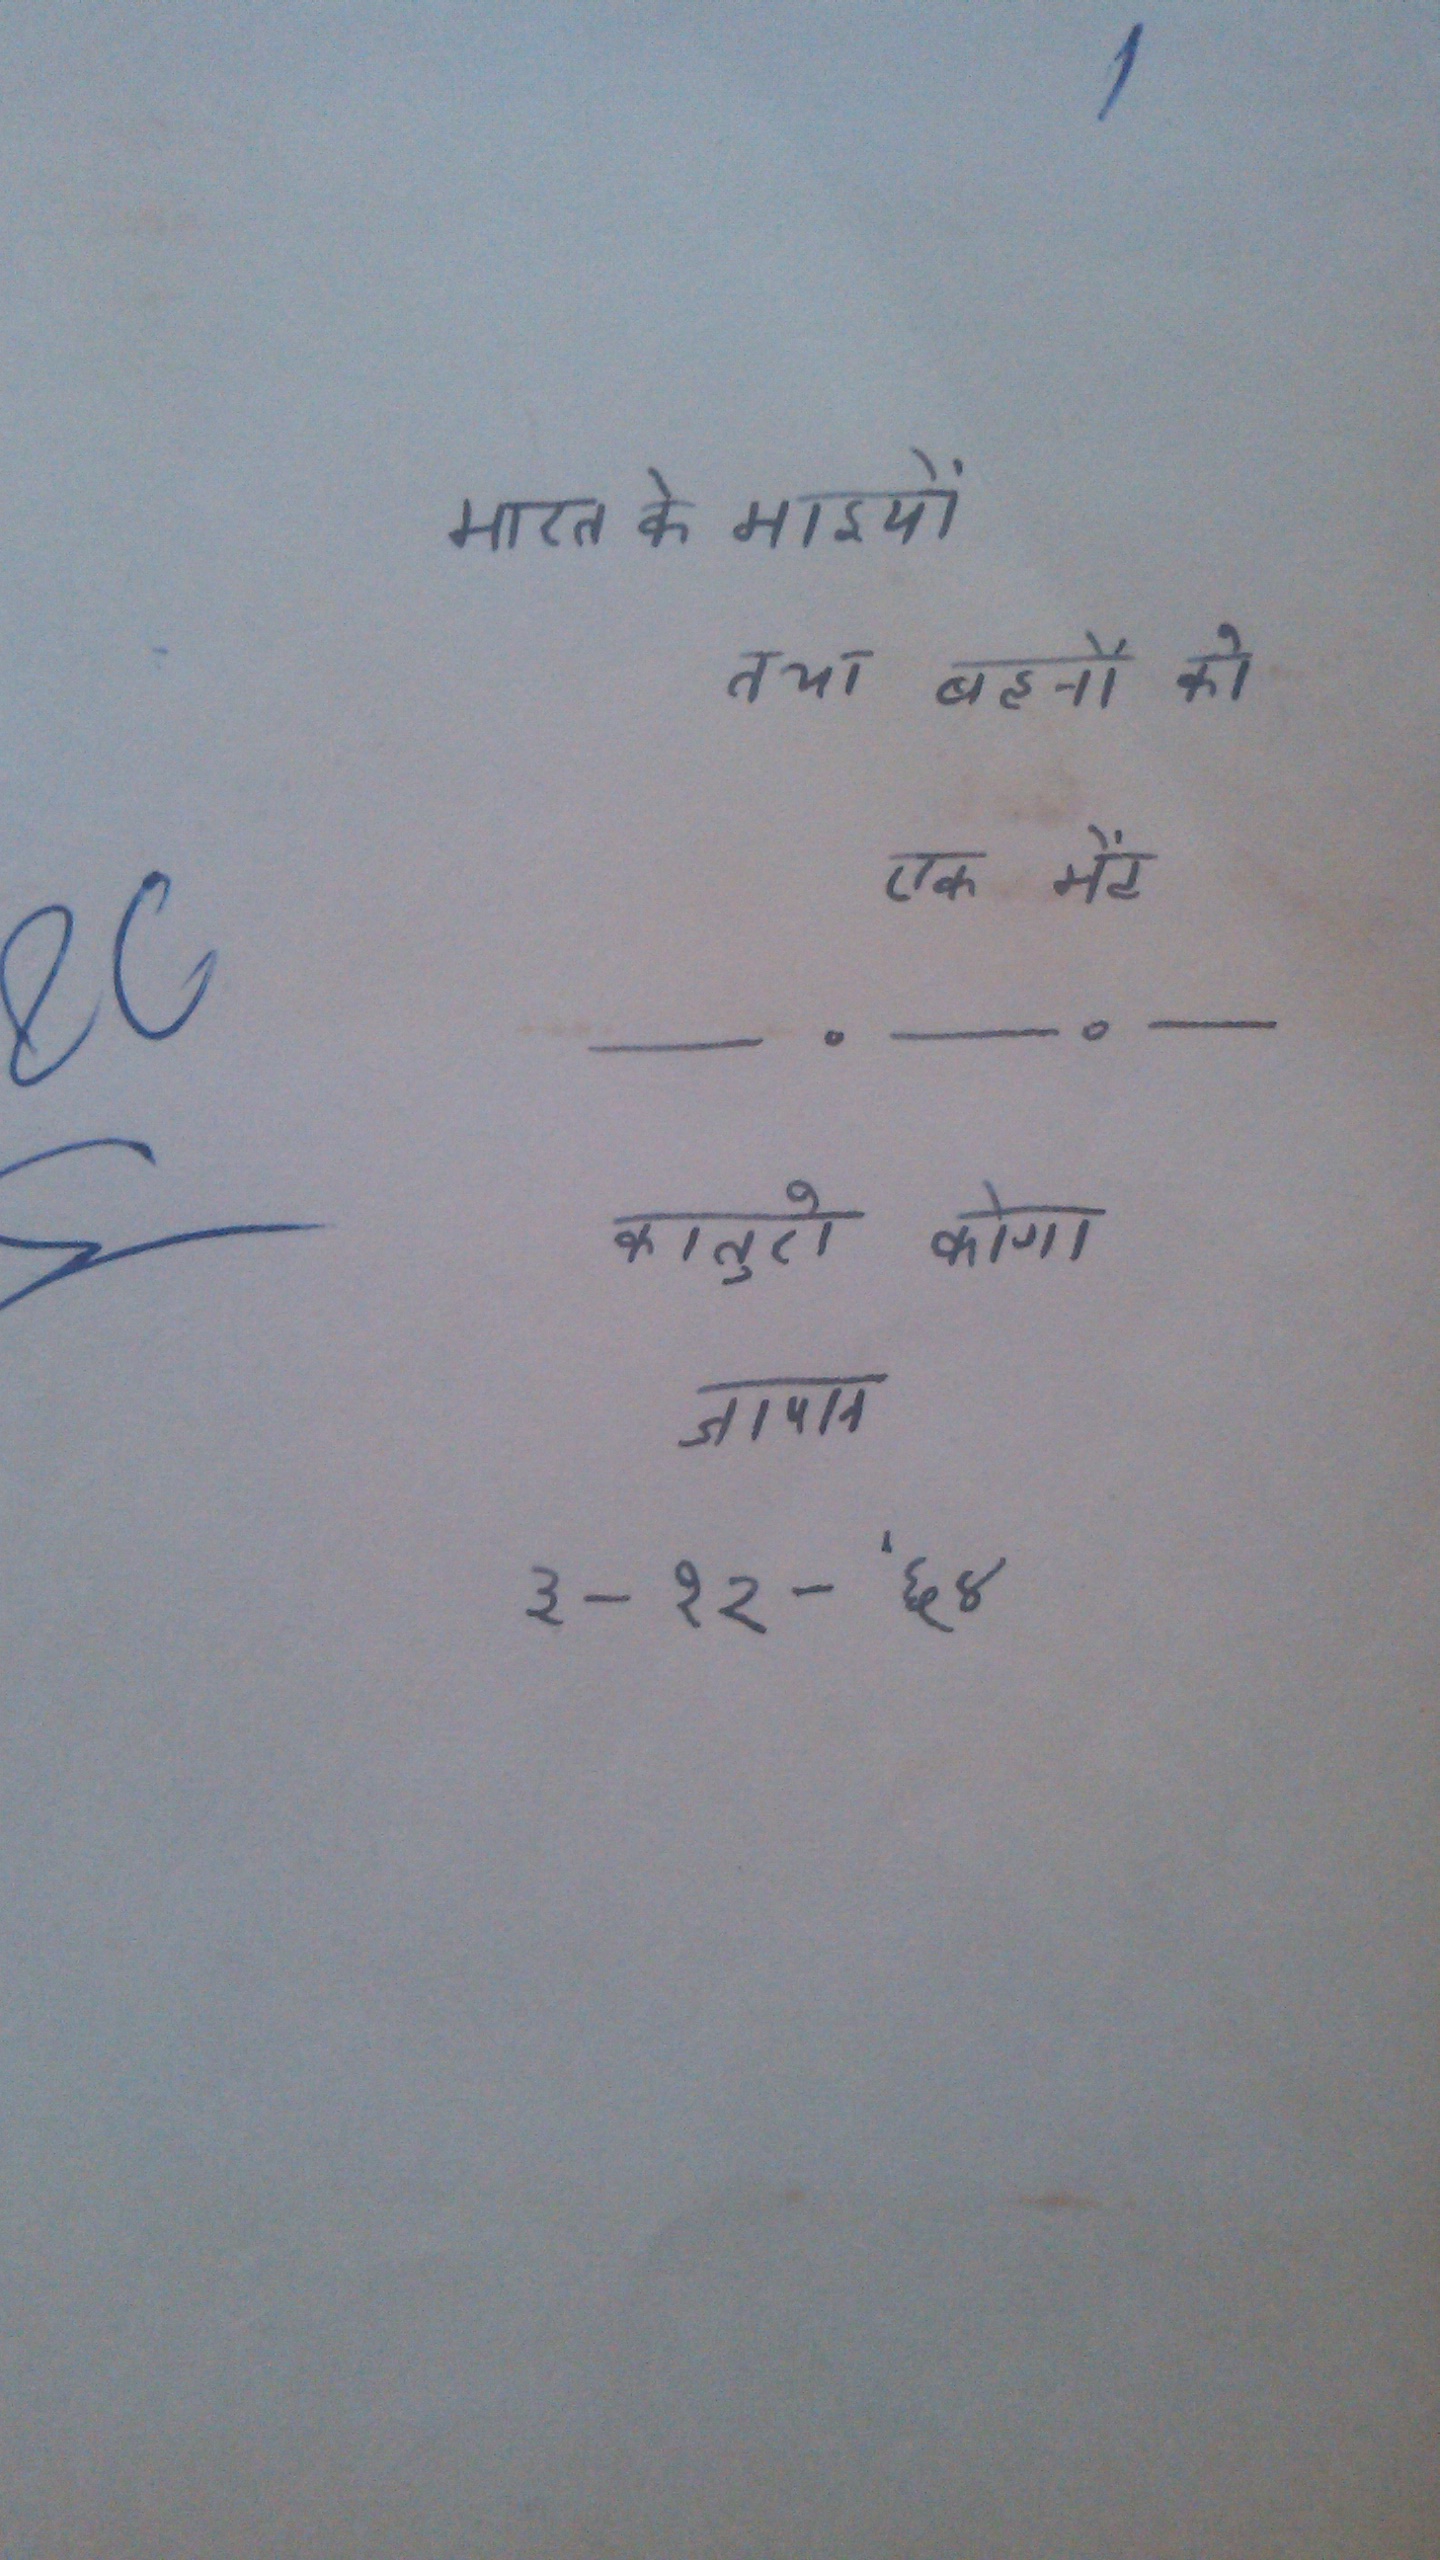 1
भारत के भाइयों
तथा बहनों को
एक भेंट
कातुरो कोगा
जापान
३-१२-'६४